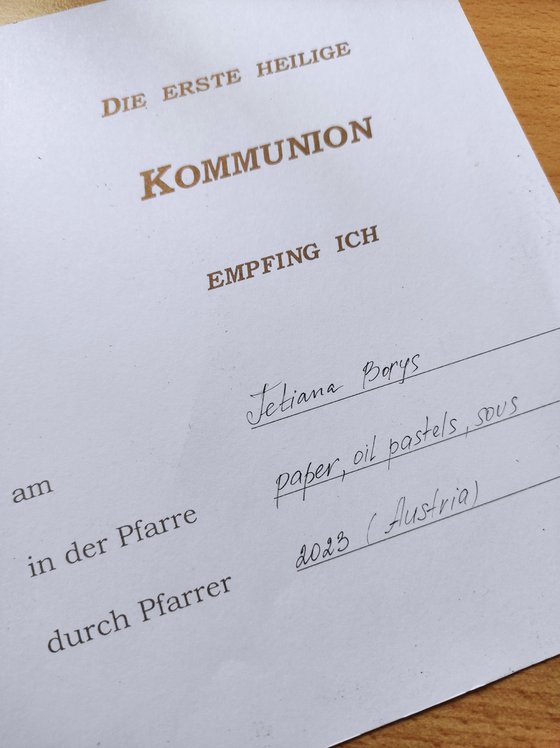 DIE ERSTE HEILIGE
KOMMUNION
EMPFING ICH
Tetiana Borys
am
paper, oil pastels, sous
in der Pfarre
2023 (Austria)
durch Pfarrer